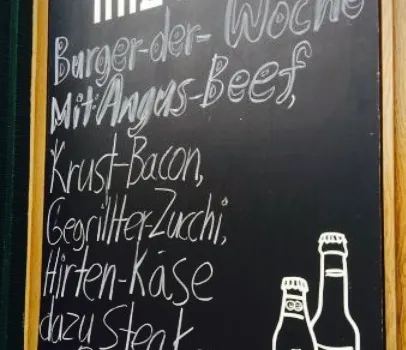 Burger-der-Woche
Mit Angus-Beef,
Krust-Bacon,
Gegrillter-Zucchi,
Hirten-Käse
dazu Steak